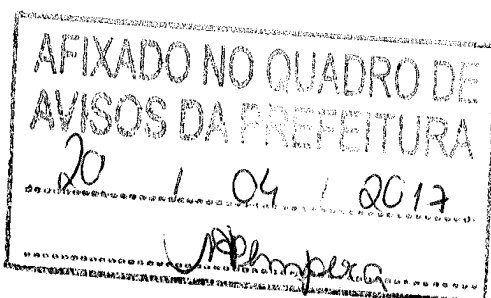 AFIXADO NO QUADRO DE
AVISOS DA PREFEITURA
20 / 04 / 2017